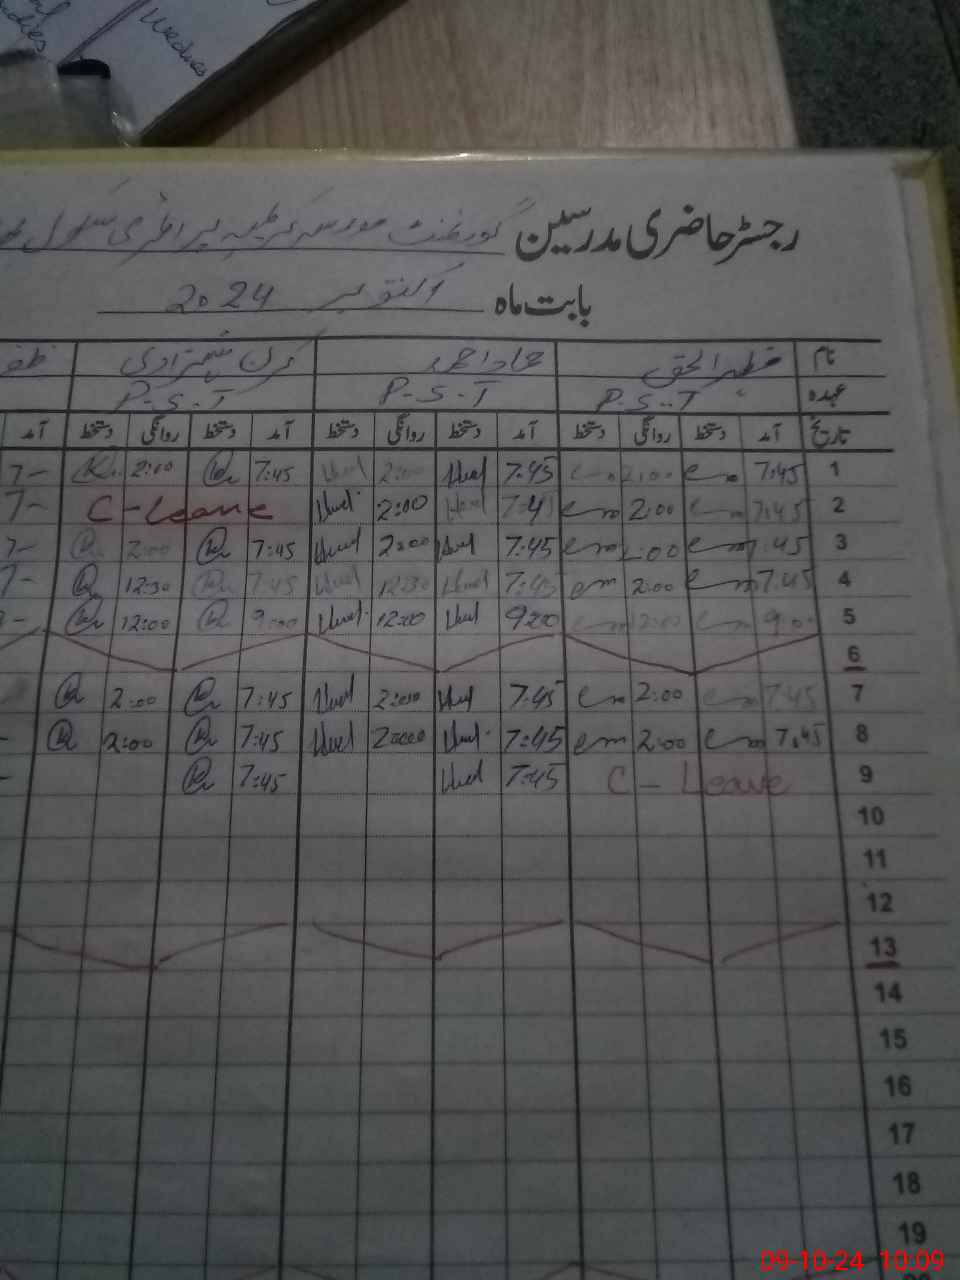 Wednes
رجسٹر حاضری مدرسین گورنمنٹ مدرسہ پرائمری سکول
بابت ماہ اکتوبر 2024
نام حماد احمد کرن شہزادی
عہدہ P.S.T P.S.T P.S.T
تاریخ آمد دستخط روانگی دستخط آمد دستخط روانگی دستخط آمد دستخط روانگی دستخط آمد
1 7:45 2:00 7:45 2:00 7:45 2:00 7-
2 7:45 2:00 7:45 2:00 C-Leave 7-
3 7:45 2:00 7:45 2:00 7:45 2:00 7-
4 7:45 2:00 7:45 12:30 7:45 12:30 7-
5 9:00 12:00 9:00 12:00 9:00 12:00
6
7 7:45 2:00 7:45 2:00 7:45 2:00
8 7:45 2:00 7:45 2:00 7:45 2:00
9 C-Leave 7:45 7:45
10
11
12
13
14
15
16
17
18
19
09-10-24 10:09